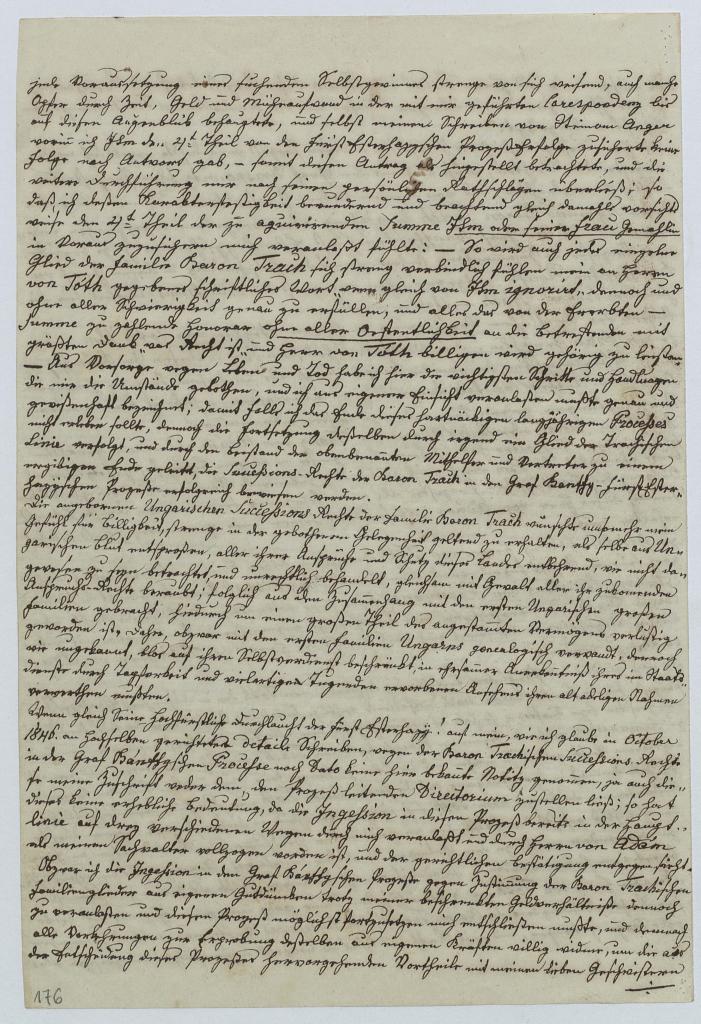 jede Voraussetzung eines suchenden Selbstgewinnes strenge von sich weisend, auch manche
Opfer durch Zeit, Geld und Müheaufwand in der mit mir geführten Correspondenz bis
auf diesen Augenblik behauptete, und selbst meinen Schreiben von Steinam Anger
worin ich Ihm den 4t Theil von den Fürst Esterhazyschen Prozeßerfolge zusicherte keine
Folge noch Antwort gab, – somit diesen Antrag als hingestellt betrachtete, und die
weitere Durchführung mir nach seinen persönlichen Rathschlägen überließ; so
daß ich deßen Karakterfestigkeit bewundernd und beachtend gleich damahls vorsichts
weise den 4t Theil der zu aquirirenden Summe Ihm oder seiner Frau Gemahlin
in Voraus zuzusichern mich veranlaßt fühlte: – So wird auch jedes einzelne
Glied der Familie Baron Trach sich streng verbindlich fühlen mein an Herrn
von Tóth gegebenes schriftliches Wort, wenn gleich von Ihm ignorirt, dennoch und
ohne aller Schwierigkeit genau zu erfüllen, und alles das von der Ererbten –
Summe zu zahlende Honorar ohne aller Oeffentlichkeit an die Betreffenden mit
größten Dank "was Recht ist" und Herr von Tóth billigen wird gehörig zu leisten.
– Aus Vorsorge wegen Leben und Tod habe ich hier die wichtigsten Schritte und Handlungen
die mir die Umstände gebothen, und ich aus eigener Einsicht veranlassen mußte genau und
gewißenhaft bezeichnet; damit falls ich das Ende dieses hartnäckigen langjährigen Processes
nicht erleben sollte, dennoch die Fortsetzung desselben durch irgend ein Glied der Trachischen
Linie verfolgt, und durch den Beistand der obenbenannten Mithelfer und Vertreter zu einem
ergiebigen Ende geleitet, die Successions-Rechte der Baron Trach in den Graf Banffy-Fürst Ester-
hazyschen Prozeße erfolgreich bewiesen werden.
Die angebornen Ungarischen Successions Rechte der Familie Baron Trach wünschte nunmehr mein
Gefühl für Billigkeit, strenge in der gebothenen Gelegenheit geltend zu erhalten, als selbe aus Un-
garischen Blut entsproßen, aller ihrer Ansprüche und Schutz dieses Landes entbehrend, wie nicht da-
gewesen zu seyn betrachtet, und unrechtlich behandelt, gleichsam mit Gewalt aller ihr zukomenden
Anspruchs-Rechte beraubt; folglich aus den Zusammenhang mit den ersten Ungarischen großen
Familien gebracht, hiedurch um einen großen Theil des angestammten Vermögens verlustig
geworden ist, daher, obzwar mit den ersten Familien Ungarns genealogisch verwandt, dennoch
wie ungekannt, blos auf ihren Selbstverdienst beschränkt, in ehrsamer Anerkentniß ihres im Staats-
dienste durch Tapferkeit und vielartigen Tugenden erworbenen Ansehens ihren alt adeligen Nahmen
verwerthen mußten.
Wenn gleich Seine Hochfürstliche Durchlaucht der Fürst Esterhazy! auf mein, wie ich glaube in October
1846. an Hochselben gerichtetes details Schreiben, wegen der Baron Trachischen Successions Rechte
in der Graf Bánffyschen Processe nach Dato keine hier bekante Notitz genomen, ja auch die-
se meine Zuschrift weder dem, den Prozeß leitenden Directorium zustellen ließ; so hat
dieses keine erhebliche Bedeutung, da die Ingession in diesen Prozeß bereits in der Haupt-
linie auf drey verschiedenen Wegen durch mich veranlaßt und durch Herrn von Adám
als meinen Sachwalter vollzogen worden ist, und der gerichtlichen Bestätigung entgegen sieht.
Obzwar ich die Ingession in den Graf Banffyschen Prozeße gegen Zustimmung der Baron Trachischen
Familienglieder aus eigenen Gutdünken trotz meiner beschränkten Geldverhältniße dennoch
zu veranlaßen und diesen Prozeß möglichst fortzusetzen mich entschließen mußte, und demnach
alle Vorkehrungen zur Erprobung desselben aus eigenen Kräften willig widme, um die aus
der Entscheidung dieses Prozeßes hervorgehenden Vortheile mit meinen lieben Geschwistern
176